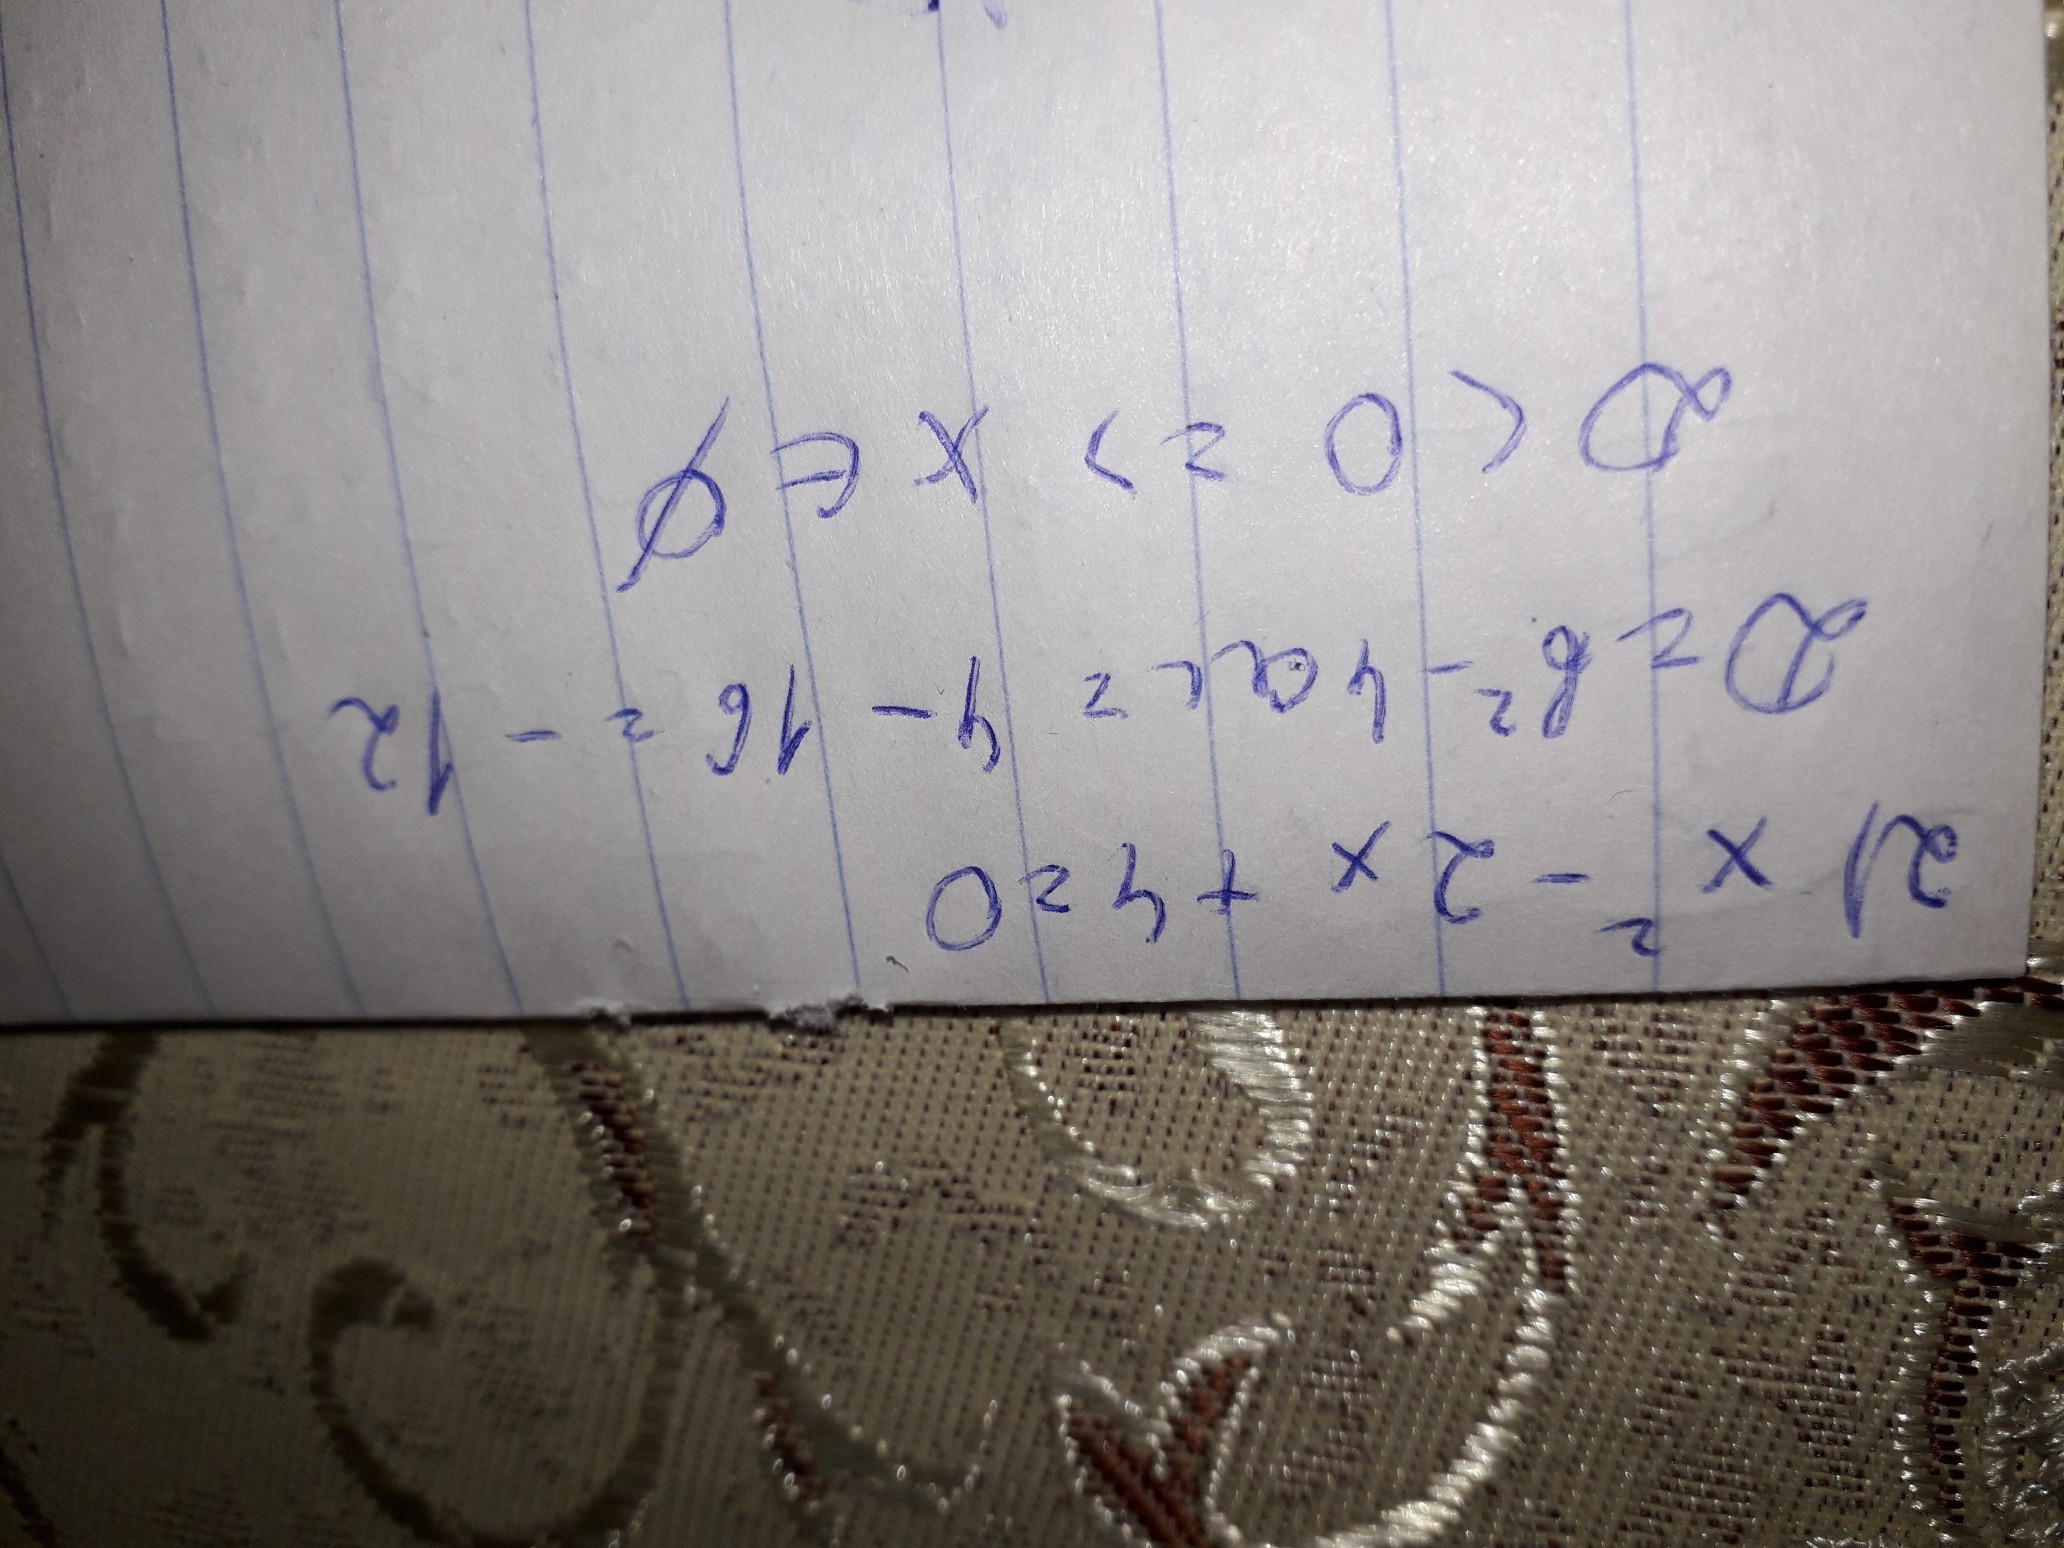 2) x² - 2x + 4 = 0
D = b² - 4ac = 4 - 16 = -12
D < 0 => x ∈ ∅